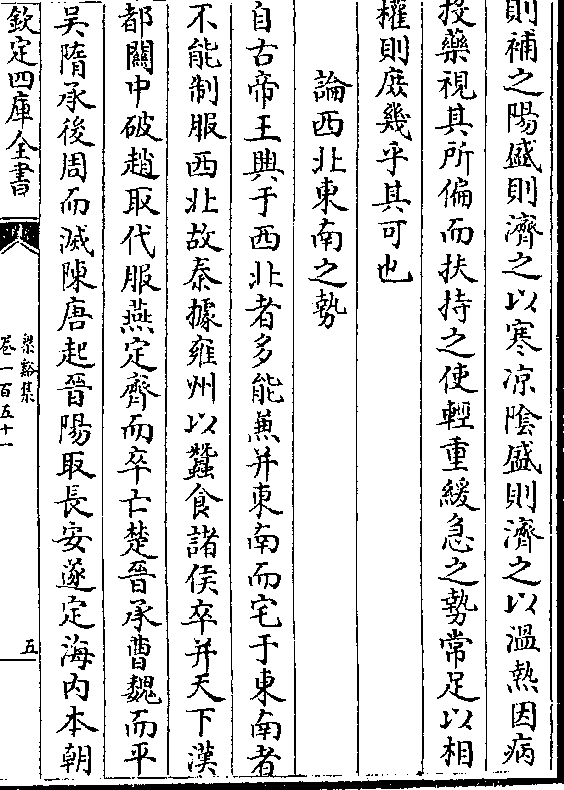 則補之陽盛則濟之以寒凉陰盛則濟之以溫熱因病
投藥視其所偏而扶持之使輕重緩急之勢常足以相
權則庶幾乎其可也
論西北東南之勢
自古帝王興于西北者多能兼并東南而宅于東南者
不能制服西北故秦據雍州以蠶食諸侯卒并天下漢
都關中破趙取代服燕定齊而卒亡楚晉承曹魏而平
吳隋承後周而滅陳唐起晉陽取長安遂定海内本朝
欽定四庫全書
梁谿集
卷一百五十一
五